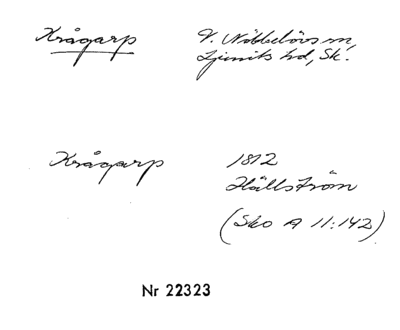 Krågarp V. Nöbbelövs sn,
Ljunits hd, Sk.
Krågarp 1812
Hällström
(Sko A 11:142)
Nr 22323